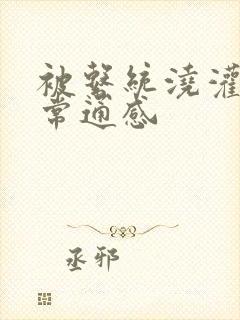 被系统浇灌
常通感
丞邪